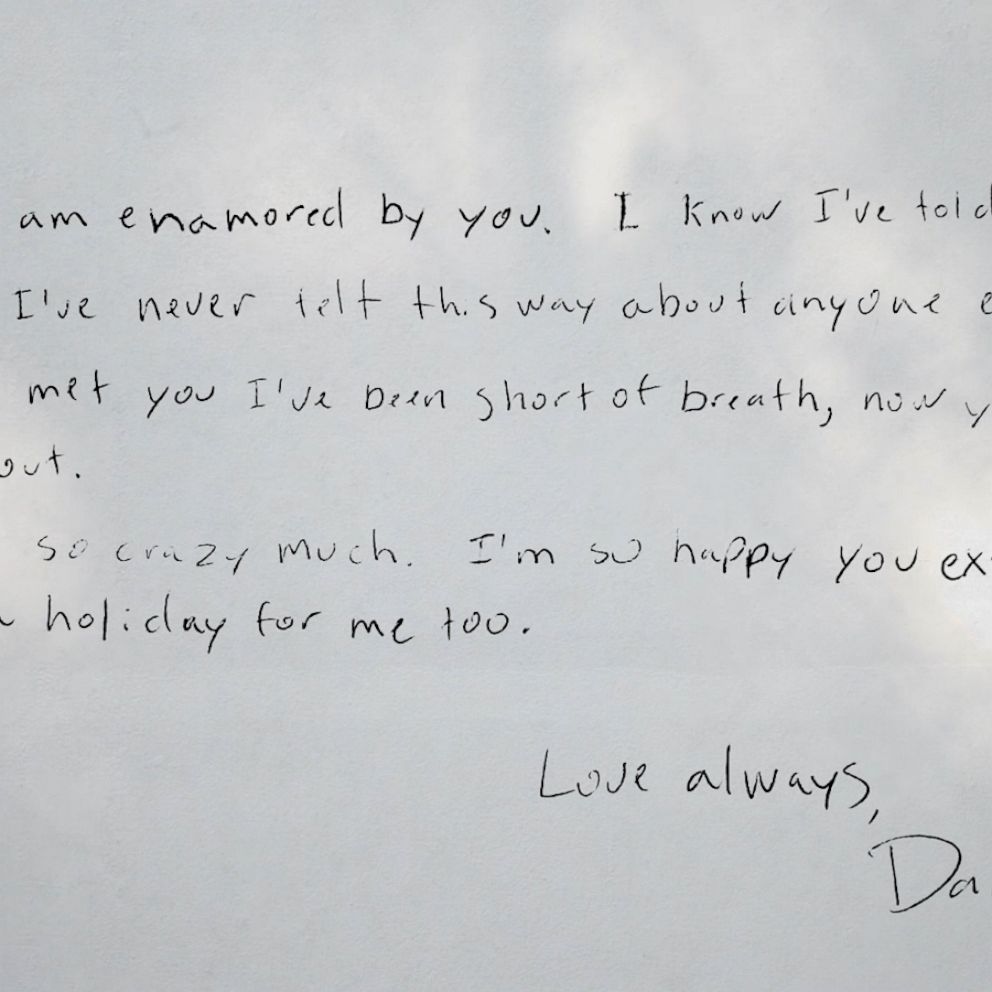 am enamored by you. I know I've told
I've never felt this way about anyone e
met you I've been short of breath, now y
out.
so crazy much. I'm so happy you ex
holiday for me too.
Love always,
Da